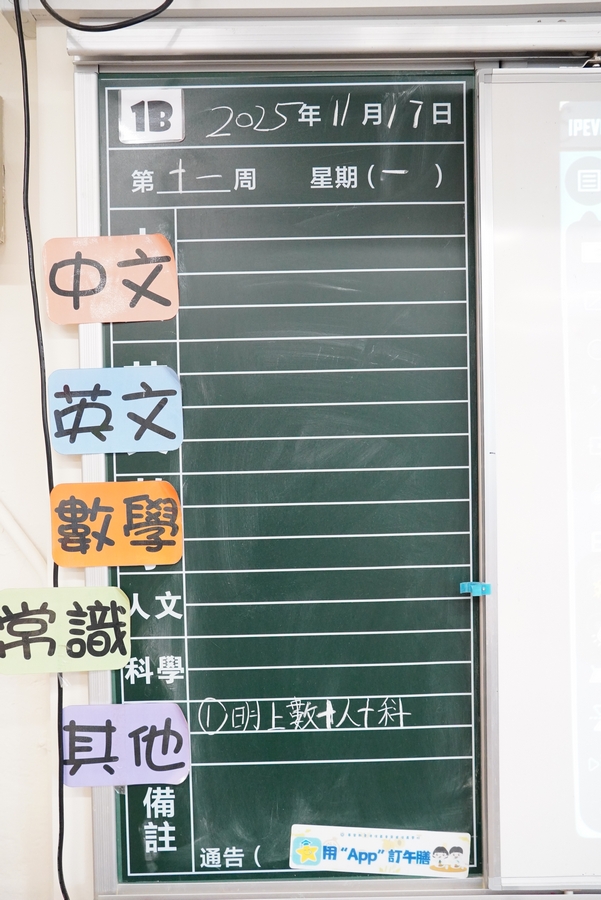 1B 2025年11月17日
第十一周 星期(一)
中文
英文
數學
人文
常識
科學
①明上數+人+科
其他
備註
通告(
用“App”訂午膳
IPEV